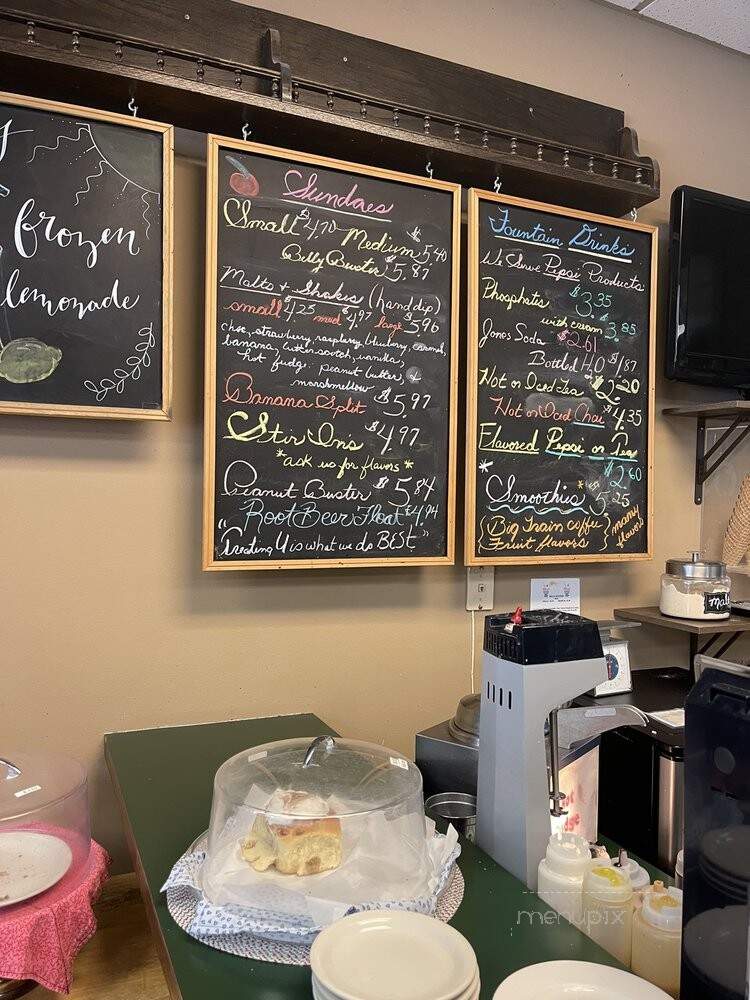 frozen
lemonade
Sundaes
Small $4.70 Medium $5.40
Belly Buster $5.87
Malts & Shakes (hand dip)
small $4.25 med $4.97 large $5.96
choc, strawberry, raspberry, blueberry, caramel,
banana, butterscotch, vanilla,
hot fudge, peanut butter, &
marshmellow
Banana Split $5.97
Stir Ins $4.97
*ask us for flavors*
Peanut Buster $5.84
Root Beer Float $4.94
"Treating U is what we do BEST"
Fountain Drinks
We Serve Pepsi Products
Phosphates $3.35
with cream 3.85
Jones Soda $2.61
Bottled H2O $1.87
Hot or Iced Tea $2.20
Hot or Iced Chai $4.35
Flavored Pepsi or Tea
$2.60
*Smoothies* $5.25
{Big Train coffee}
{Fruit flavors}
many
flavors
menupix